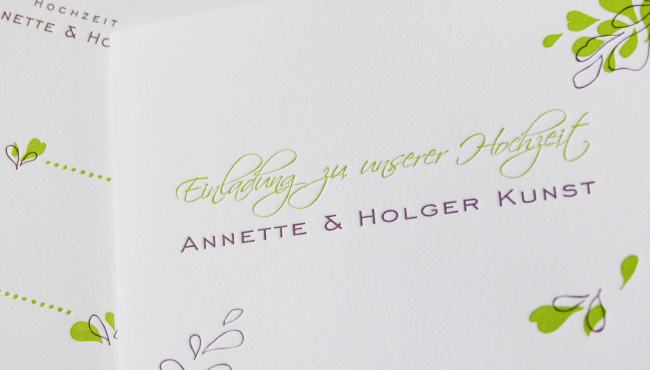 Hochzeit
Annette & Ho
Einladung zu unserer Hochzeit
Annette & Holger Kunst